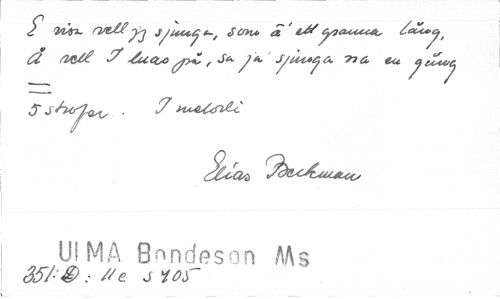 E visa vell jej sjunga, som ä' ett granna lång,
Å vell I luas på, sa ja' sjunga na en gång
5 strofer. I melodi
Elias Beckman
ULMA Bondeson Ms
351:D: 11c s 705